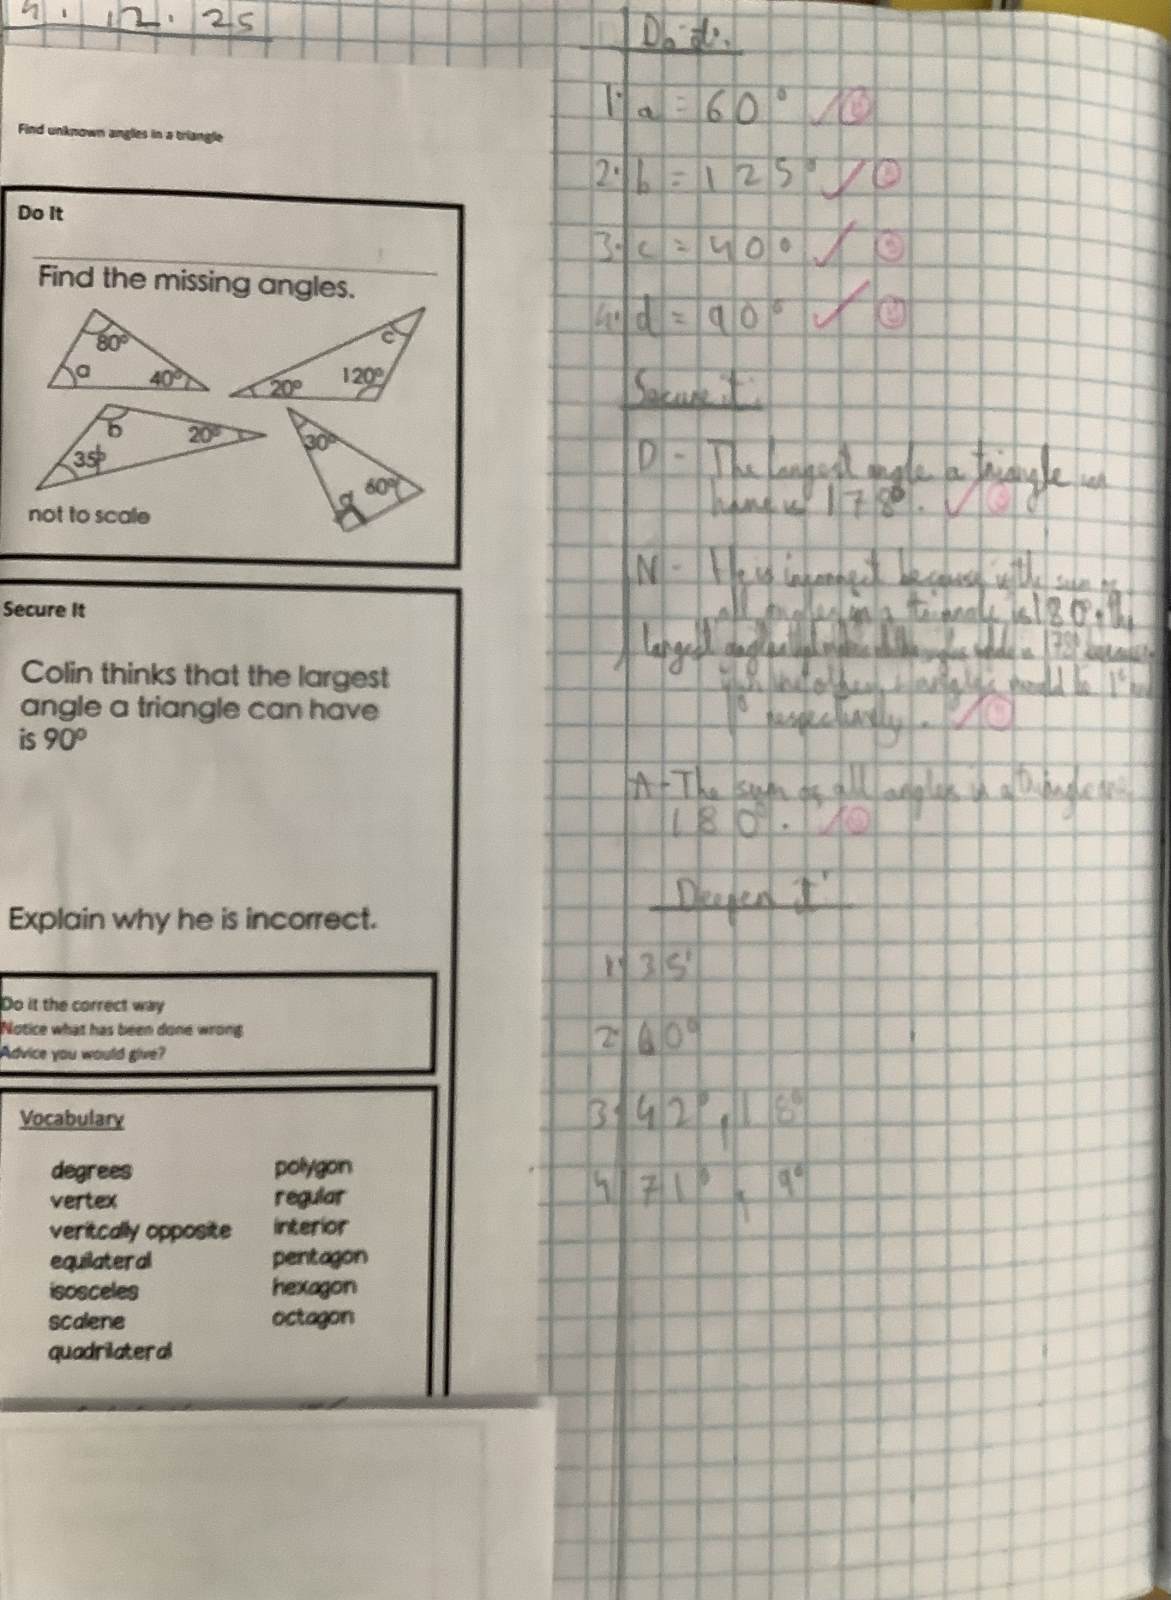 4.12.25
Find unknown angles in a triangle
Do It
Find the missing angles.
80°
a
40°
c
20°
120°
b
20°
35°
30°
60°
d
not to scale
Secure It
Colin thinks that the largest
angle a triangle can have
is 90°
Explain why he is incorrect.
Do it the correct way
Notice what has been done wrong
Advice you would give?
Vocabulary
degrees
vertex
veritcally opposite
equilateral
isosceles
scalene
quadrilateral
polygon
regular
interior
pentagon
hexagon
octagon
Do it:
1. a = 60°
2. b = 125°
3. c = 40°
4. d = 90°
Secure it:
D - The largest angle a triangle can
have is 178°.
N - He is incorrect because if the sum of
all angles in a triangle is 180°, the
largest angle 178° because
the other 2 angles would be 1° and
1° respectively.
A - The sum of all angles in a triangle
180°.
Deepen it
1. 35°
2. 60°
3. 42°, 18°
4. 71°, 9°